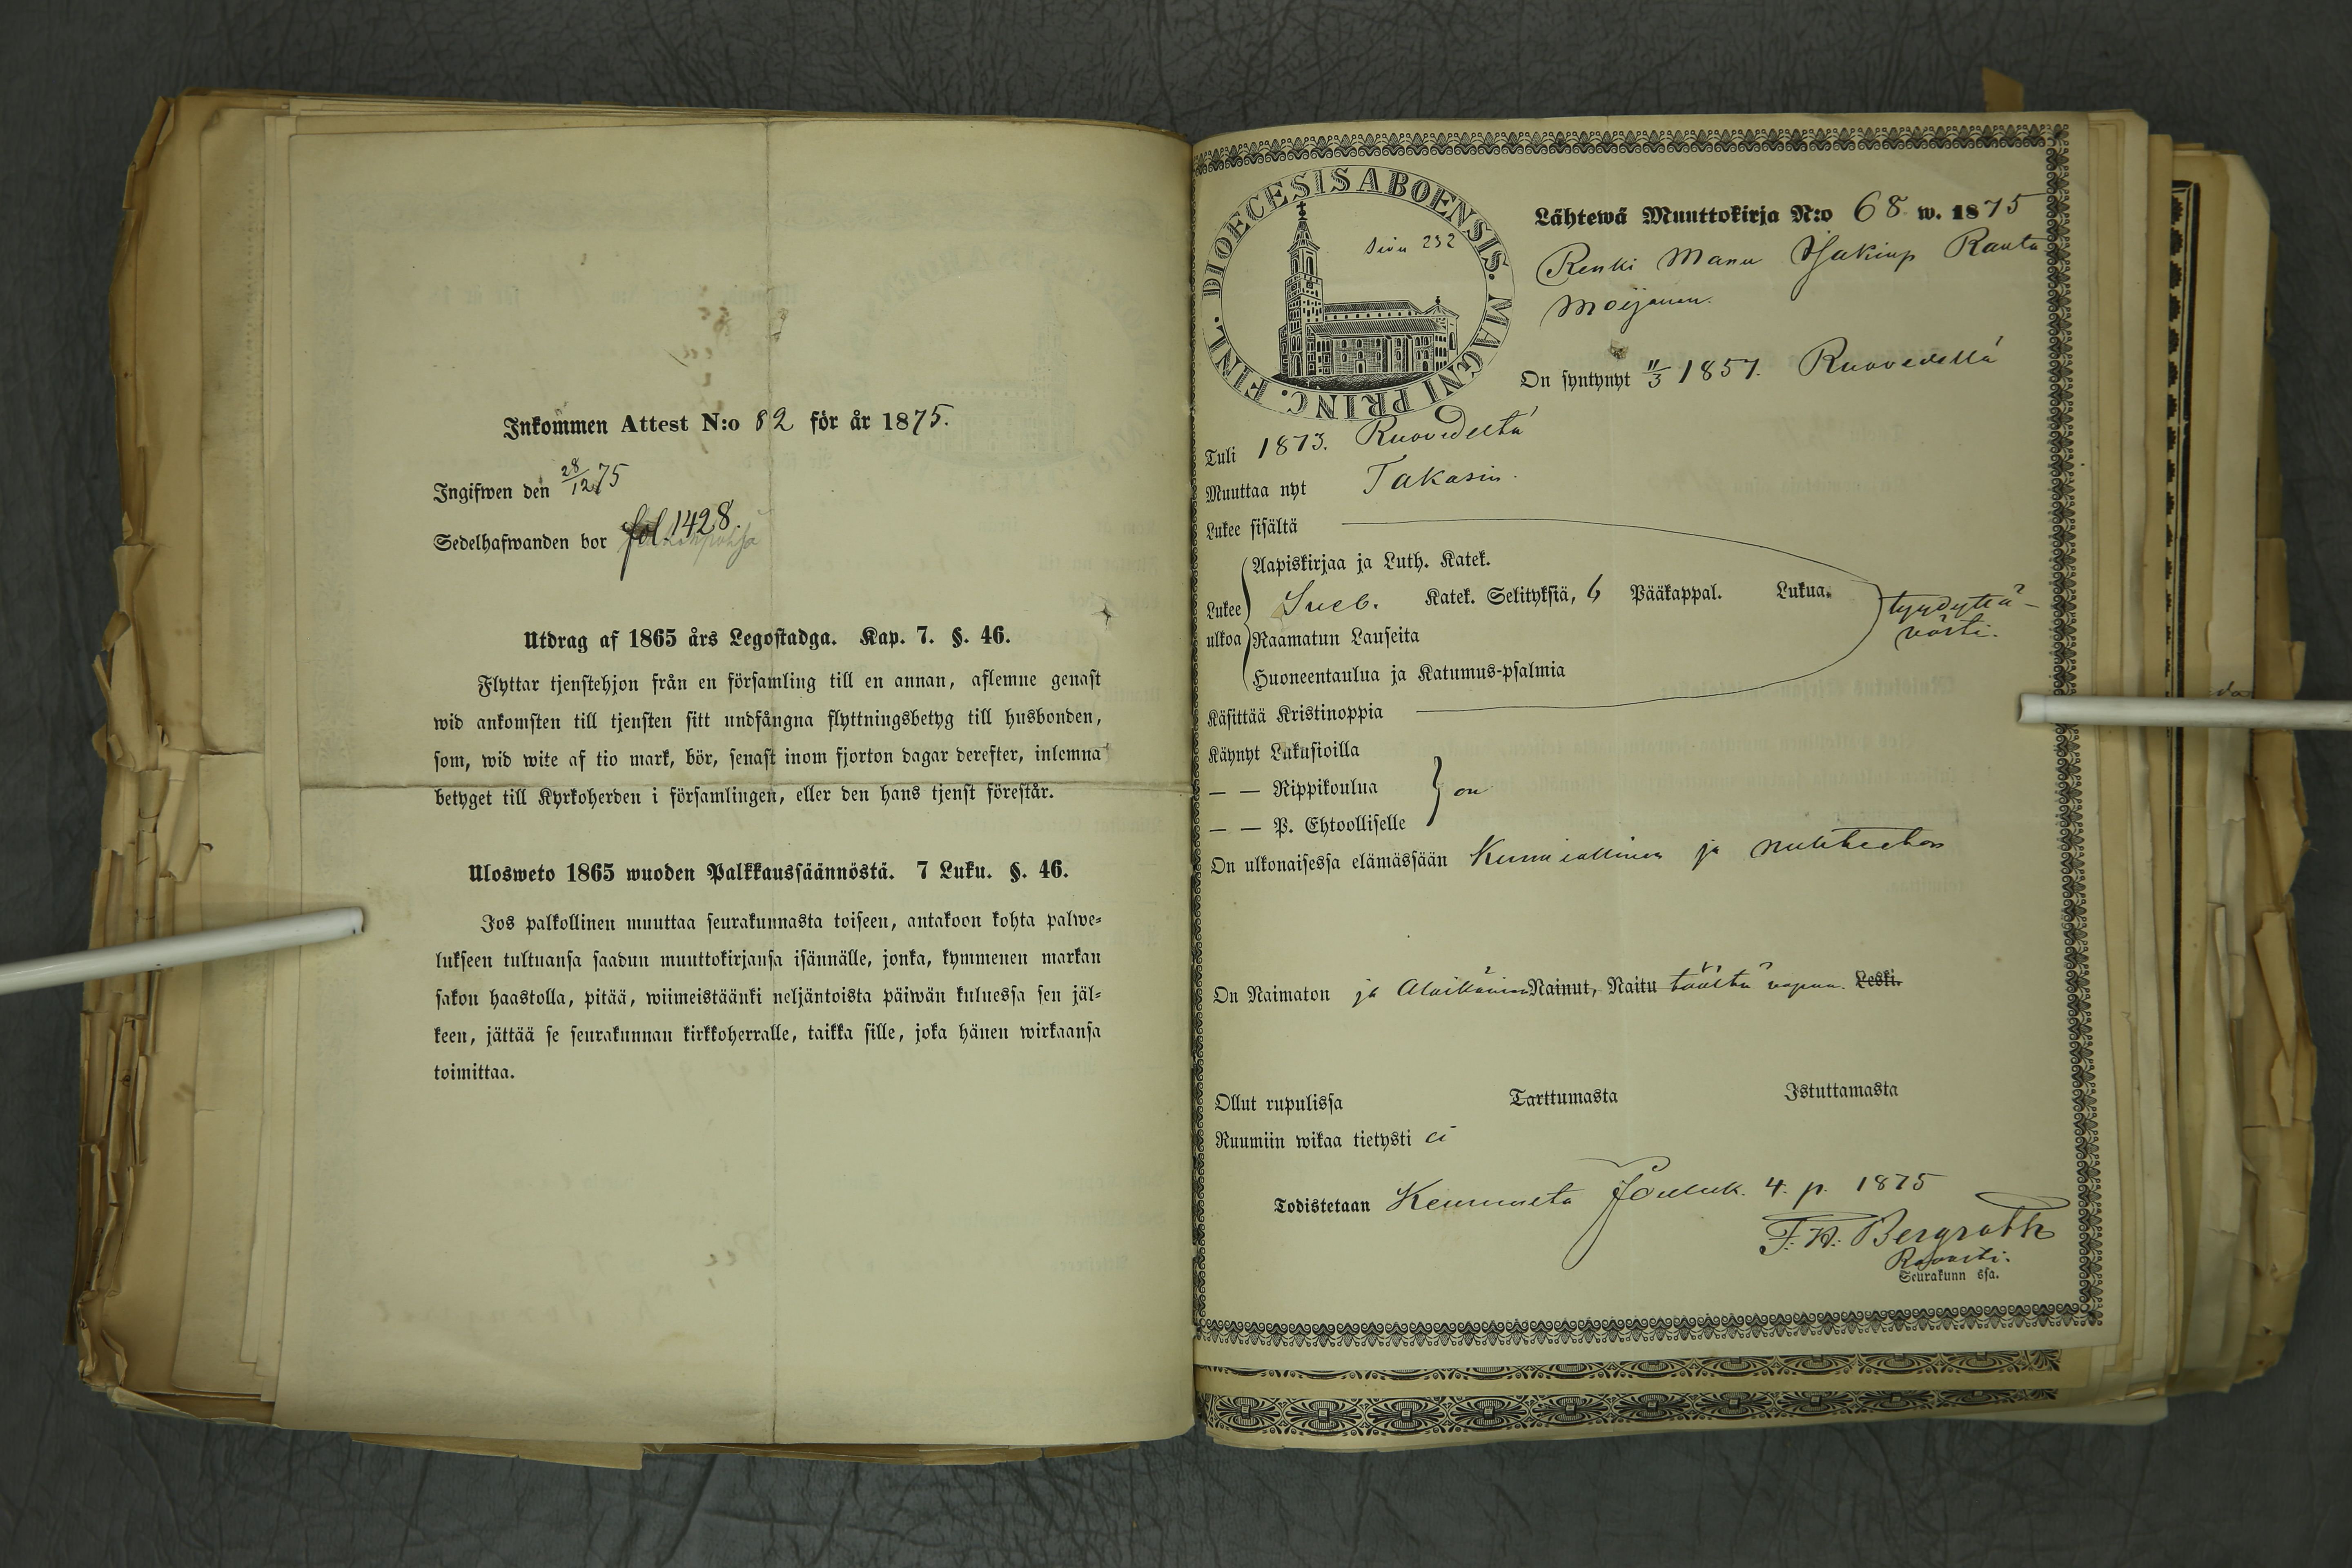 Inkommen Attest N:o 82 för år 1875.
Ingifwen den 28/12 75
Sedelhafwanden bor fol. 1428.
Utdrag af 1865 års Legostadga. Kap. 7. §. 46.
Flyttar tjenstehjon från en församling till en annan, aflemne genast
wid ankomsten till tjensten sitt undfångna flyttningsbetyg till husbonden,
som, wid wite af tio mark, bör, senast inom fjorton dagar derefter, inlemna
betyget till Kyrkoherden i församlingen, eller den hans tjenst förestår.
Ulosweto 1865 wuoden Palkkaussäännöstä. 7 Luku. §. 46.
Jos palkollinen muuttaa seurakunnasta toiseen, antakoon kohta palwe=
lukseen tultuansa saadun muuttokirjansa isännälle, jonka, kymmenen markan
sakon haastolla, pitää, wiimeistäänki neljäntoista päiwän kuluessa sen jäl=
keen, jättää se seurakunnan kirkkoherralle, taikka sille, joka hänen wirkaansa
toimittaa.
DIOECESIS ABOENSIS. MAGNI PRINC. FINL.
Sivu 232
Lähtewä Muuttokirja N:o 68 w. 1875
Renki Manu Isakinp Ranta
Moijanen.
On syntynyt 11/3 1857. Ruovedellä
Tuli 1873. Ruovedeltä
Muuttaa nyt Takasin.
Lukee sisältä
Aapiskirjaa ja Luth. Katek.
Lukee Sveb. Katek. Selityksiä, 6 Pääkappal. Lukua. tyydyttä-
ulkoa Raamatun Lauseita västi.
Huoneentaulua ja Katumus-psalmia
Käsittää Kristinoppia
Käynyt Lukusioilla
— — Rippikoulua } on
— — P. Ehtoolliselle
On ulkonaisessa elämässään Kunniallinen ja nuhteeton
On Naimaton ja Alaikäinen Nainut, Naitu täältä vapaa. Leski.
Ollut rupulissa Tarttumasta Istuttamasta
Ruumiin wikaa tietysti ei
Todistetaan Keuruulta Jouluk. 4. p. 1875
F. W. Bergroth
Rovasti.
Seurakunn ssa.